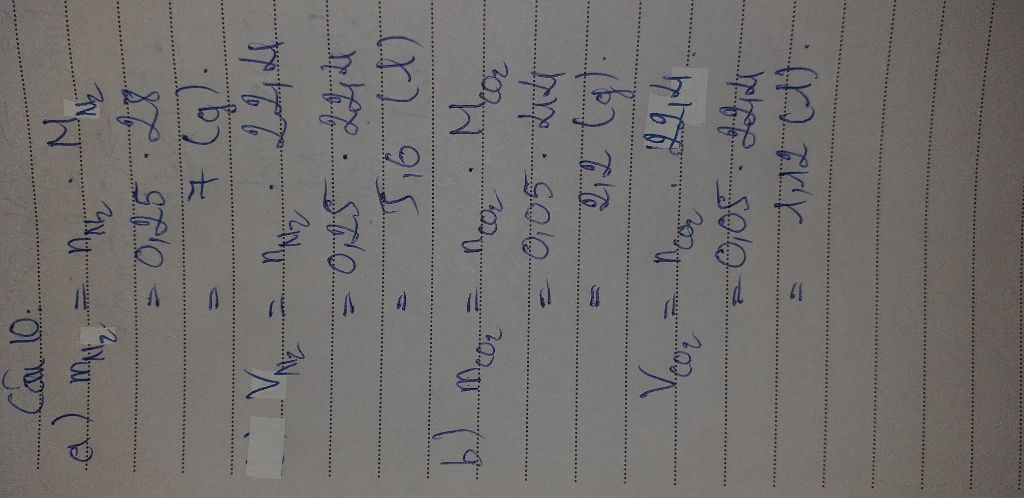 Câu 10:
a) mN₂ = nN₂ . MN₂
= 0,25 . 28
= 7 (g).
VN₂ = nN₂ . 22,4
= 0,25 . 22,4
= 5,6 (l)
b) mCO₂ = nCO₂ . MCO₂
= 0,05 . 44
= 2,2 (g).
VCO₂ = nCO₂ . 22,4
= 0,05 . 22,4
= 1,12 (l).